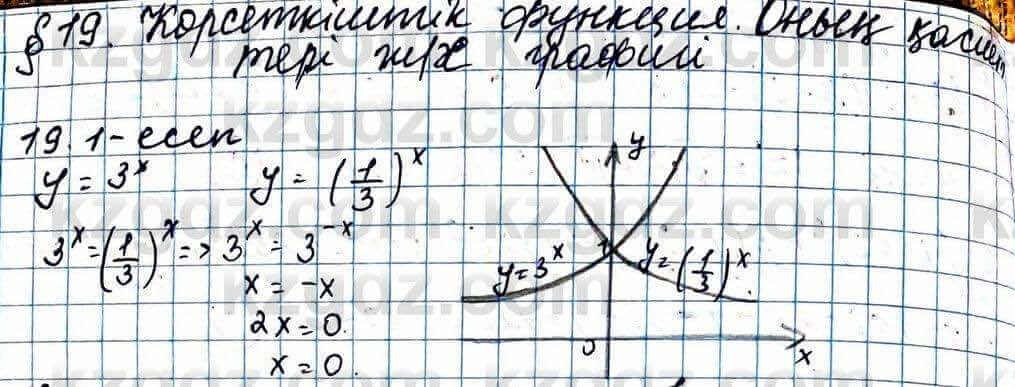 §19. Көрсеткіштік функция. Оның қасиет
тері және графигі
19.1-есеп
y = 3^x y = (1/3)^x
3^x = (1/3)^x => 3^x = 3^-x
x = -x
2x = 0.
x = 0.
y
1
y=3^x
y=(1/3)^x
0
x
kzgdz.com